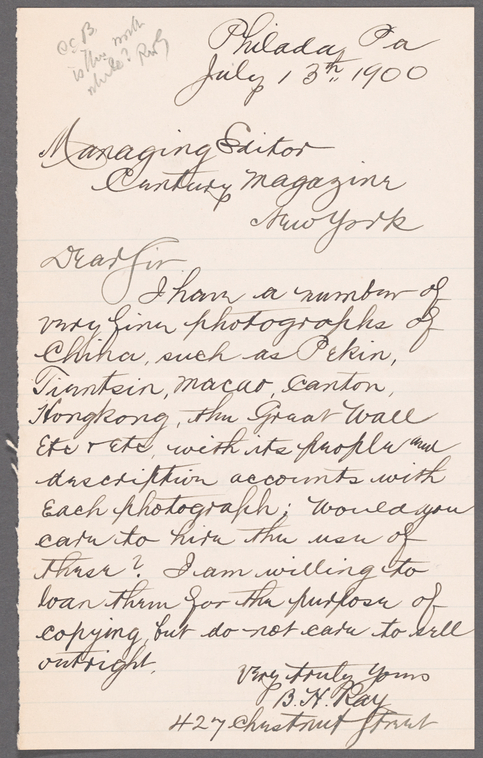 C.C.B.
is this worth
while? Rudy
Philada, Pa
July 13th, 1900
Managing Editor
Century Magazine
New York
Dear Sir
I have a number of
very fine photographs of
China, such as Pekin,
Tientsin, Macao, Canton,
Hongkong, the Great Wall
Etc & Etc, with its people and
descriptive accounts with
Each photograph; Would you
care to hire the use of
these? I am willing to
loan them for the purpose of
copying, but do not care to sell
outright.
Very truly yours
B. H. Ray
427 Chestnut Street